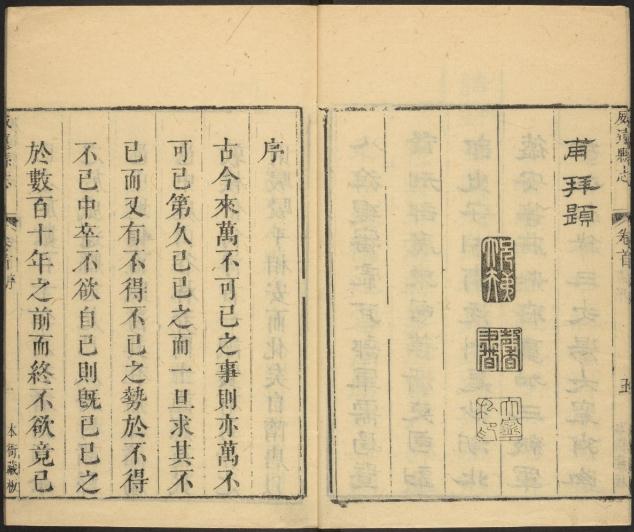 威遠縣志
卷首
五
甫拜題
序
古今來萬不可已之事則亦萬不
可已第久已已之而一旦求其不
已而又有不得不已之勢於不得
不已中卒不欲自已則旣已已之
於數百十年之前而終不欲竟已
威遠縣志
卷首序
一
本衙藏板